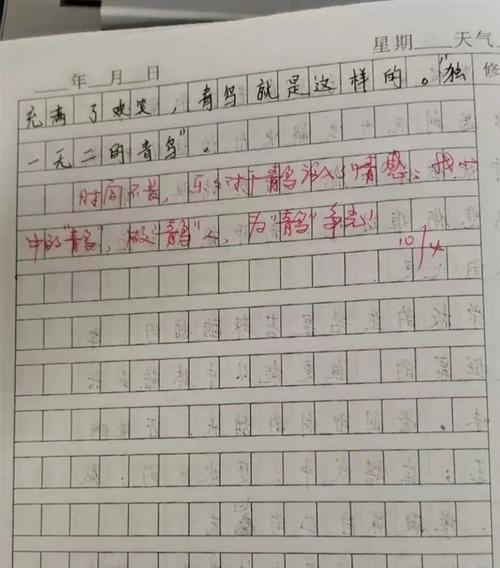 星期 天气
年 月 日 修
充满了欢笑，青鸟就是这样的。"独
一无二的青鸟"。
时间不长，对"青鸟"情感：我心
中的"青鸟"，做"青鸟"人，为"青鸟"争光！
10/4